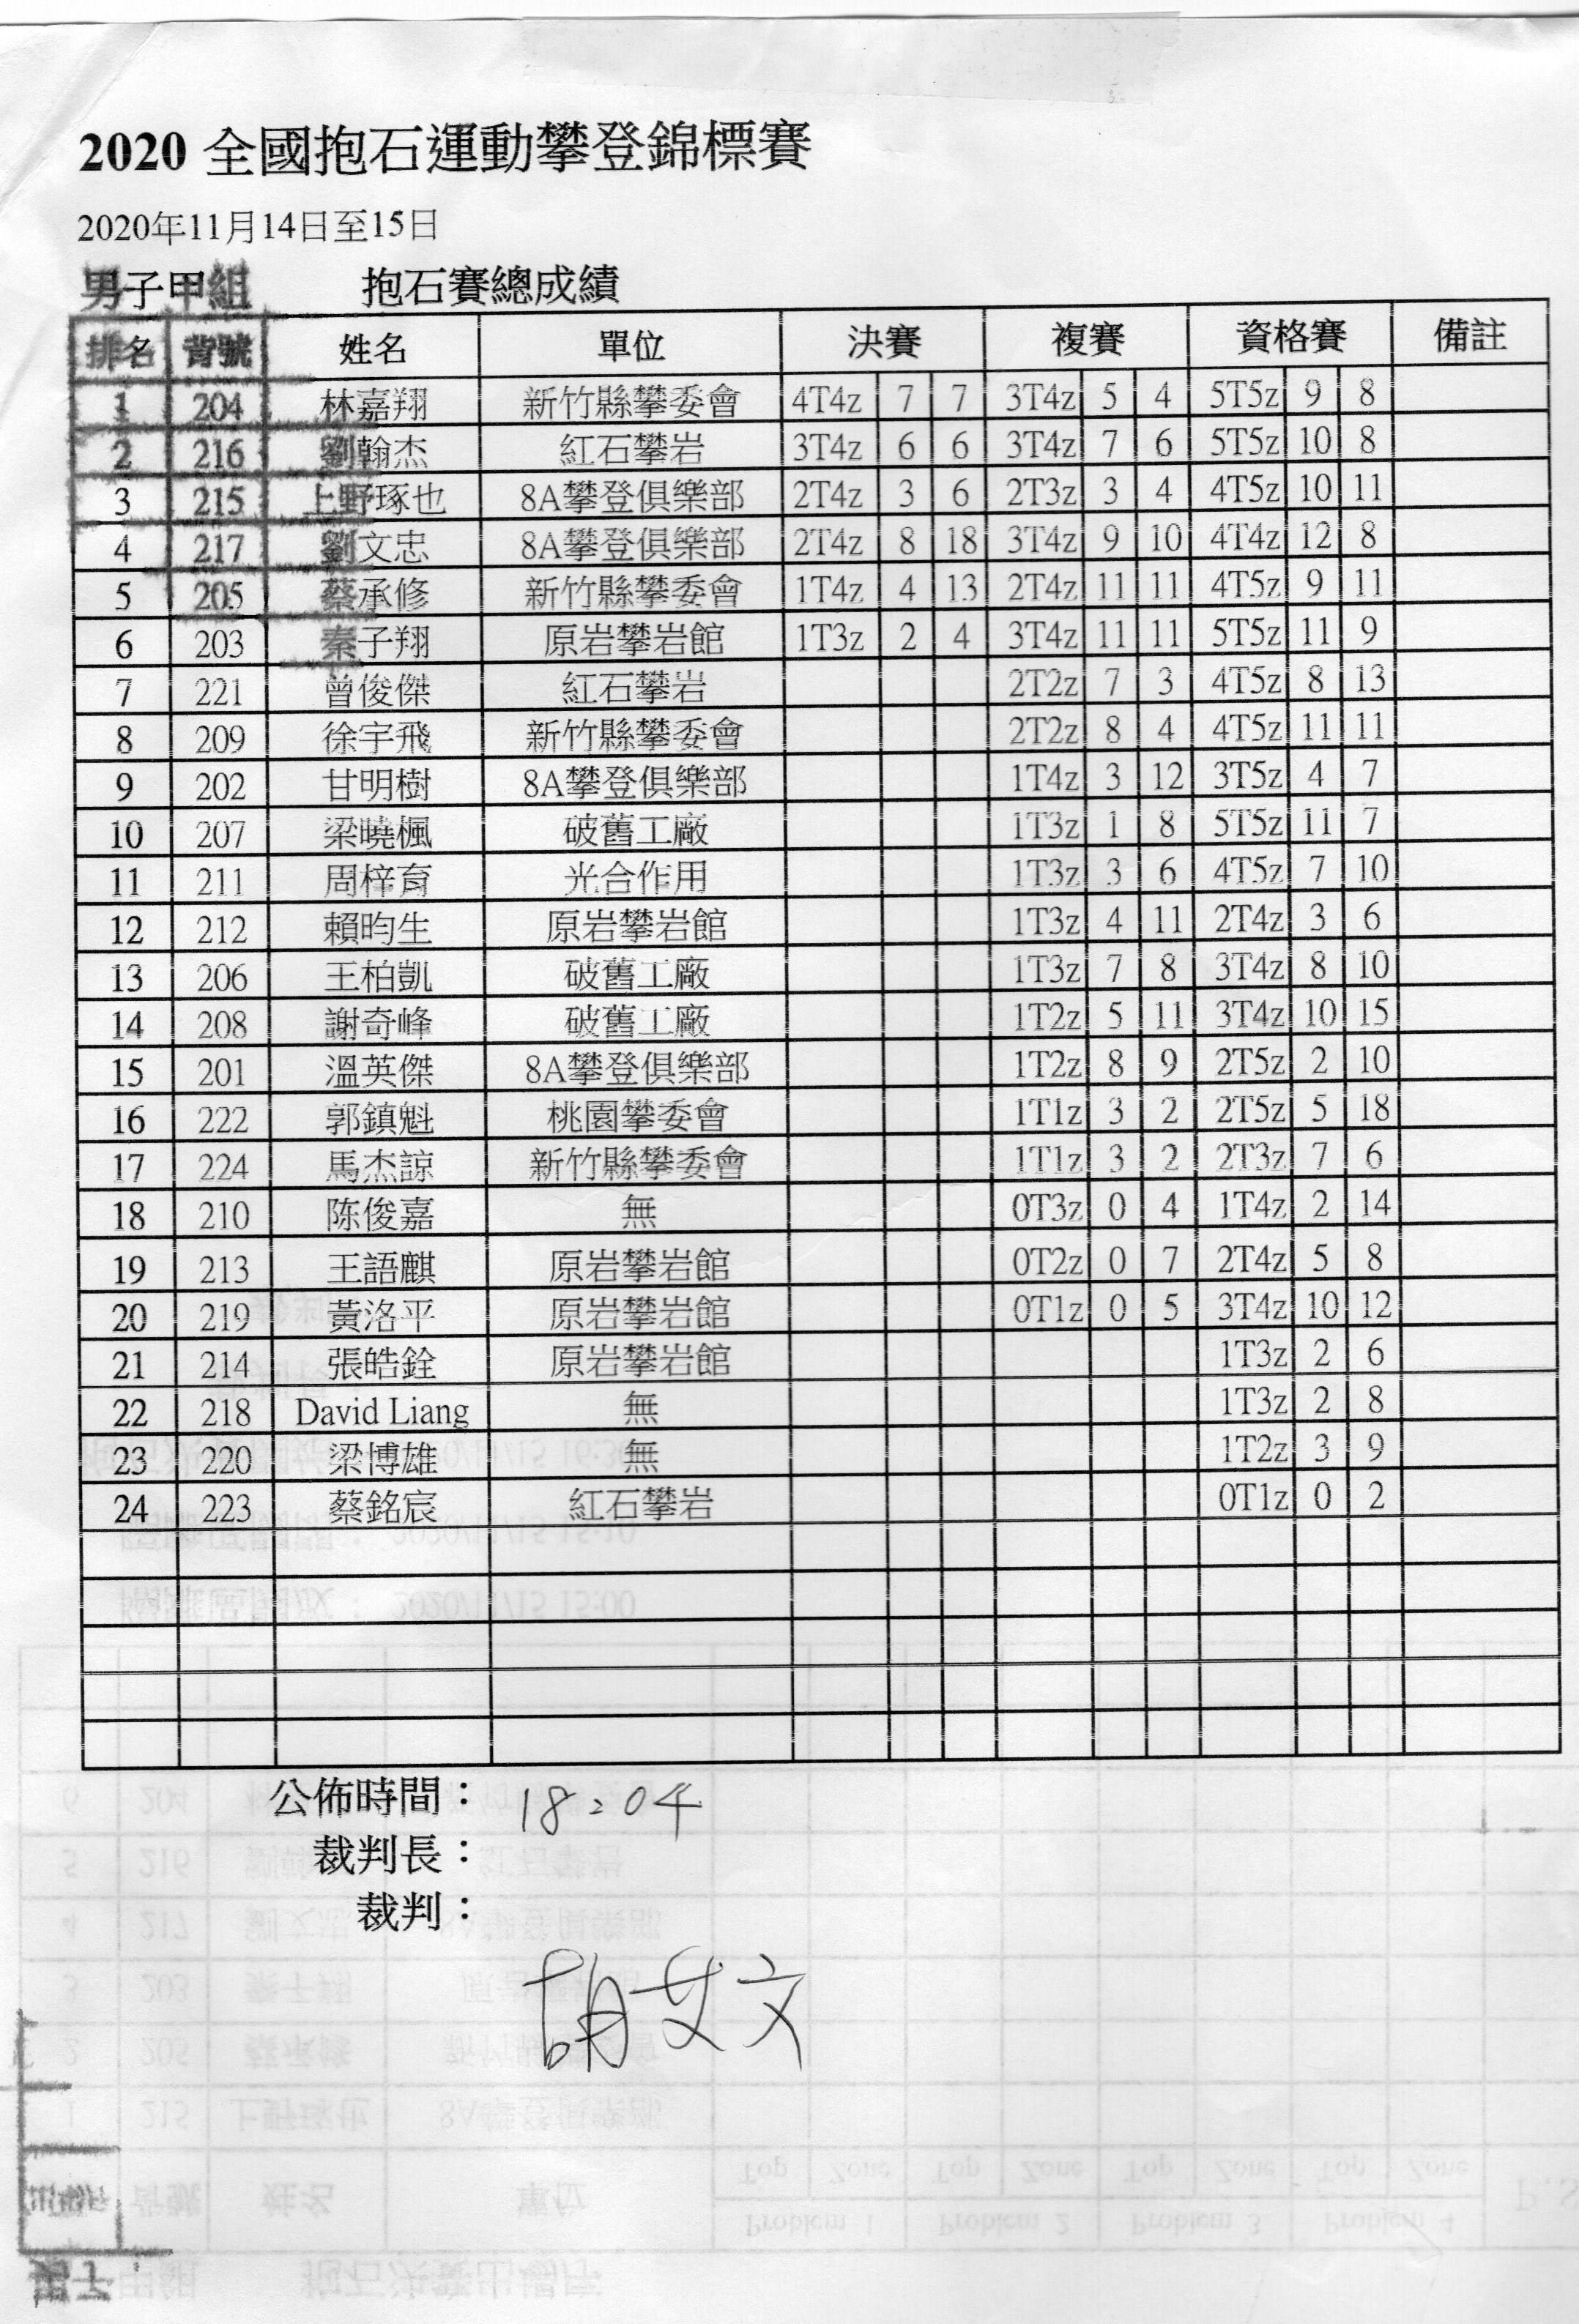 2020 全國抱石運動攀登錦標賽
2020年11月14日至15日
男子甲組 抱石賽總成績
排名 背號 姓名 單位 決賽 複賽 資格賽 備註
1 204 林嘉翔 新竹縣攀委會 4T4z 7 7 3T4z 5 4 5T5z 9 8
2 216 劉翰杰 紅石攀岩 3T4z 6 6 3T4z 7 6 5T5z 10 8
3 215 上野琢也 8A攀登俱樂部 2T4z 3 6 2T3z 3 4 4T5z 10 11
4 217 劉文忠 8A攀登俱樂部 2T4z 8 18 3T4z 9 10 4T4z 12 8
5 205 蔡承修 新竹縣攀委會 1T4z 4 13 2T4z 11 11 4T5z 9 11
6 203 秦子翔 原岩攀岩館 1T3z 2 4 3T4z 11 11 5T5z 11 9
7 221 曾俊傑 紅石攀岩 2T2z 7 3 4T5z 8 13
8 209 徐宇飛 新竹縣攀委會 2T2z 8 4 4T5z 11 11
9 202 甘明樹 8A攀登俱樂部 1T4z 3 12 3T5z 4 7
10 207 梁曉楓 破舊工廠 1T3z 1 8 5T5z 11 7
11 211 周梓育 光合作用 1T3z 3 6 4T5z 7 10
12 212 賴昀生 原岩攀岩館 1T3z 4 11 2T4z 3 6
13 206 王柏凱 破舊工廠 1T3z 7 8 3T4z 8 10
14 208 謝奇峰 破舊工廠 1T2z 5 11 3T4z 10 15
15 201 溫英傑 8A攀登俱樂部 1T2z 8 9 2T5z 2 10
16 222 郭鎮魁 桃園攀委會 1T1z 3 2 2T5z 5 18
17 224 馬杰諒 新竹縣攀委會 1T1z 3 2 2T3z 7 6
18 210 陈俊嘉 無 0T3z 0 4 1T4z 2 14
19 213 王語麒 原岩攀岩館 0T2z 0 7 2T4z 5 8
20 219 黃洛平 原岩攀岩館 0T1z 0 5 3T4z 10 12
21 214 張皓銓 原岩攀岩館 1T3z 2 6
22 218 David Liang 無 1T3z 2 8
23 220 梁博雄 無 1T2z 3 9
24 223 蔡銘宸 紅石攀岩 0T1z 0 2
公佈時間： 18:04
裁判長：
裁判：
胡艾文